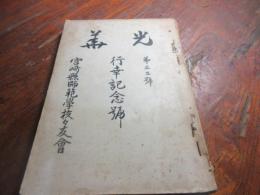 光華
第二三號
行幸記念號
宮崎縣師範學校々友會